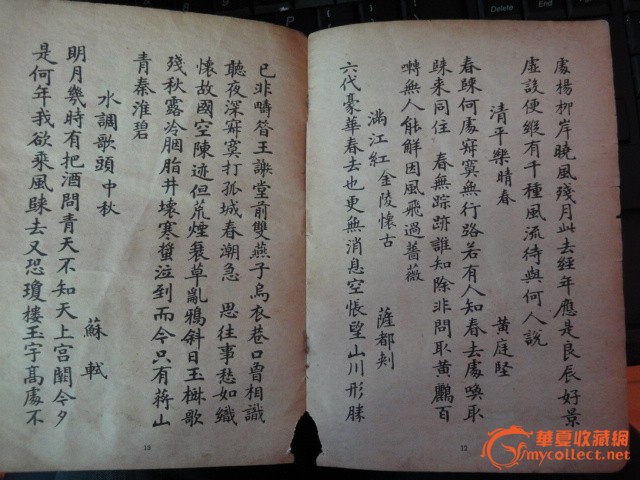 處楊柳岸曉風殘月此去經年應是良辰好景
虛設便縱有千種風流待與何人說
清平樂晴春 黃庭堅
春歸何處寂寞無行路若有人知春去處喚取
歸来同住 春無踪跡誰知除非問取黃鸝百
囀無人能解因風飛過薔薇
滿江紅金陵懷古 薩都剌
六代豪華春去也更無消息空悵望山川形勝
12
已非疇昔王謝堂前雙燕子烏衣巷口曾相識
聽夜深寂寞打孤城春潮急 思往事愁如織
懷故國空陳迹但荒煙衰草亂鴉斜日玉樹歌
殘秋露冷胭脂井壞寒螿泣到而今只有蔣山
青秦淮碧
水調歌頭中秋 蘇軾
明月幾時有把酒問青天不知天上宮闕今夕
是何年我欲乘風歸去又恐瓊樓玉宇高處不
13
Delete
End
華夏收藏網
mycollect.net